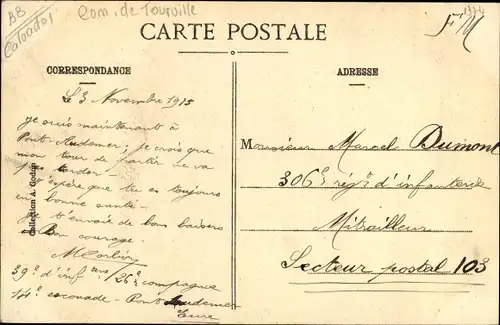 BB
Calvados
Com. de Tourville
F M
CARTE POSTALE
CORRESPONDANCE
ADRESSE
Le 3 Novembre 1915
Je suis maintenant à
Pont-Audemer; je crois que
mon tour de partir ne va
pas tarder
J'espère que tu es toujours
en bonne santé
Je t'envoie de bons baisers
Bon courage.
39e d'infterie / 26e compagnie
14e escouade - Pont Audemer
Eure
Monsieur Marcel Dumont
306e régt d'infanterie
Mitrailleur
Secteur postal 103
Collection A. Godon